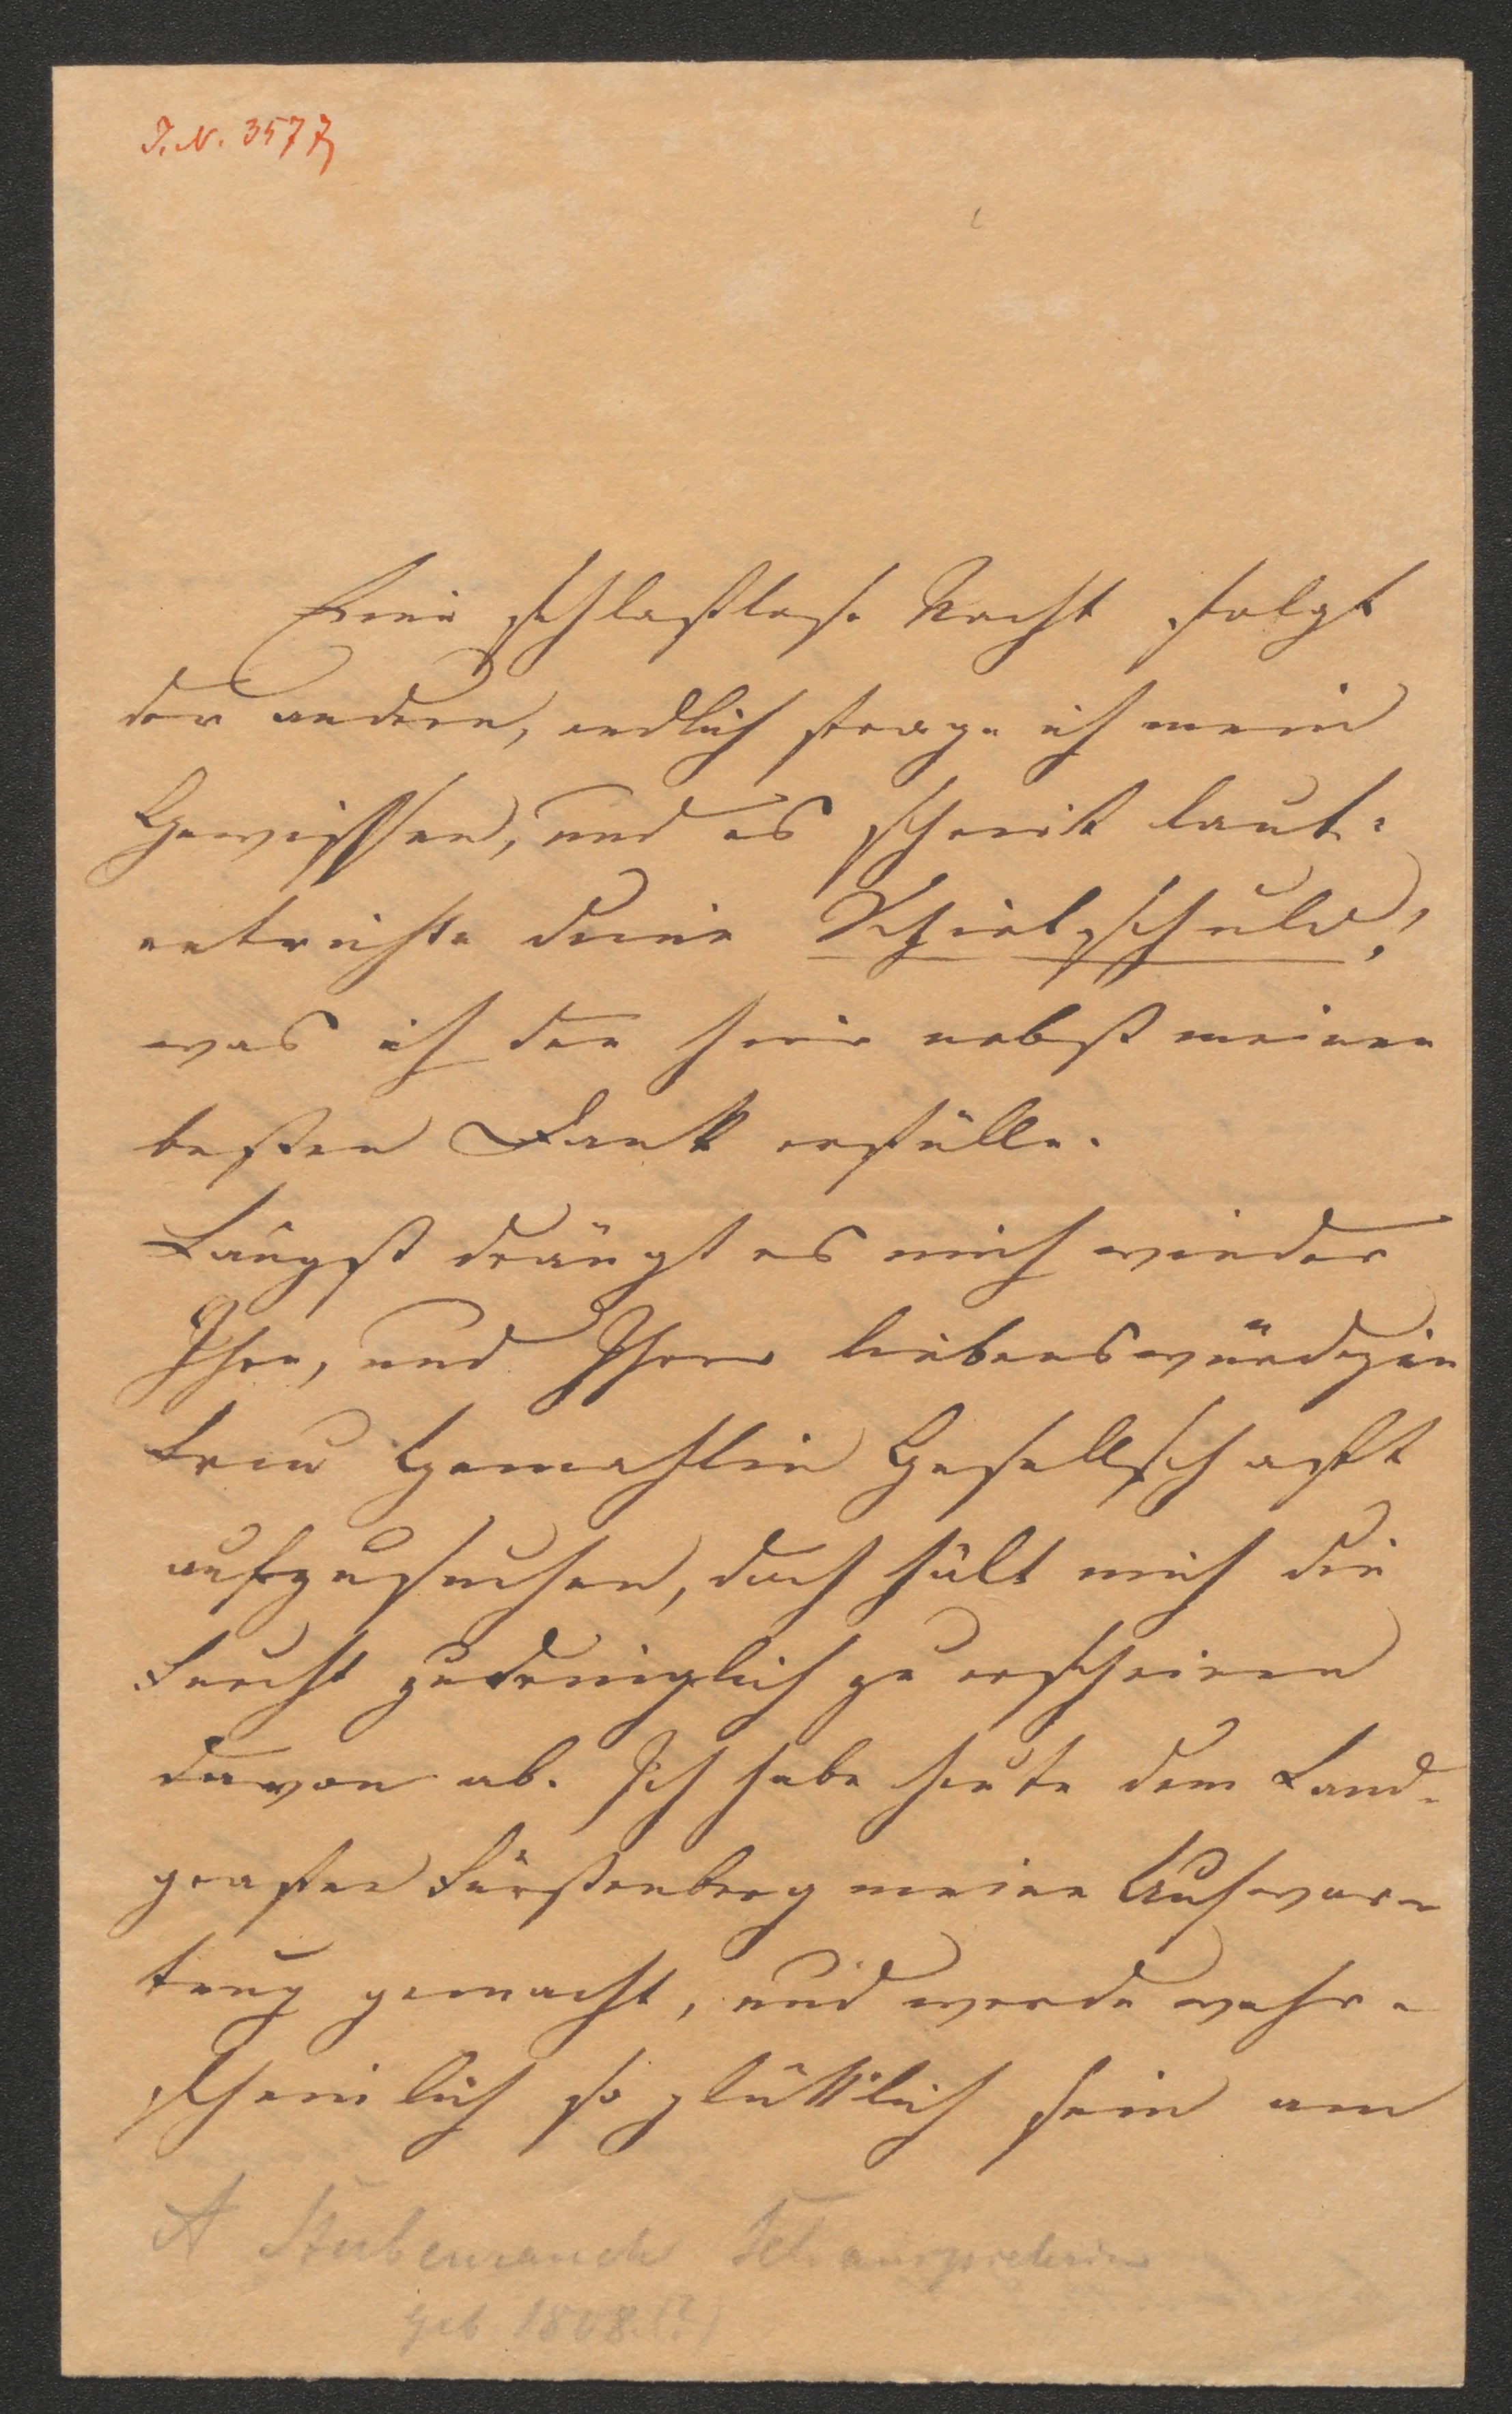 J. N. 3577
Eine schlaflose Nacht folgt
der andern, endlich frage ich mein
Gewissen, und es schreit laut:
entrichte deine Spielschuld!
was ich den hier nebst meinen
besten Dank erfülle.
Längst drängt es mich wieder
Ihre, und Ihrer liebenswürdigen
Frau Gemahlin Gesellschaft
aufzusuchen, doch hält mich die
Furcht zudringlich zu erscheinen
davon ab. Ich habe heute dem Land-
grafen Fürstenberg meine Aufwar-
tung gemacht, und werde wahr-
scheinlich so glücklich sein am
A Stubenrauch Schauspielerin
geb 1808 (?)